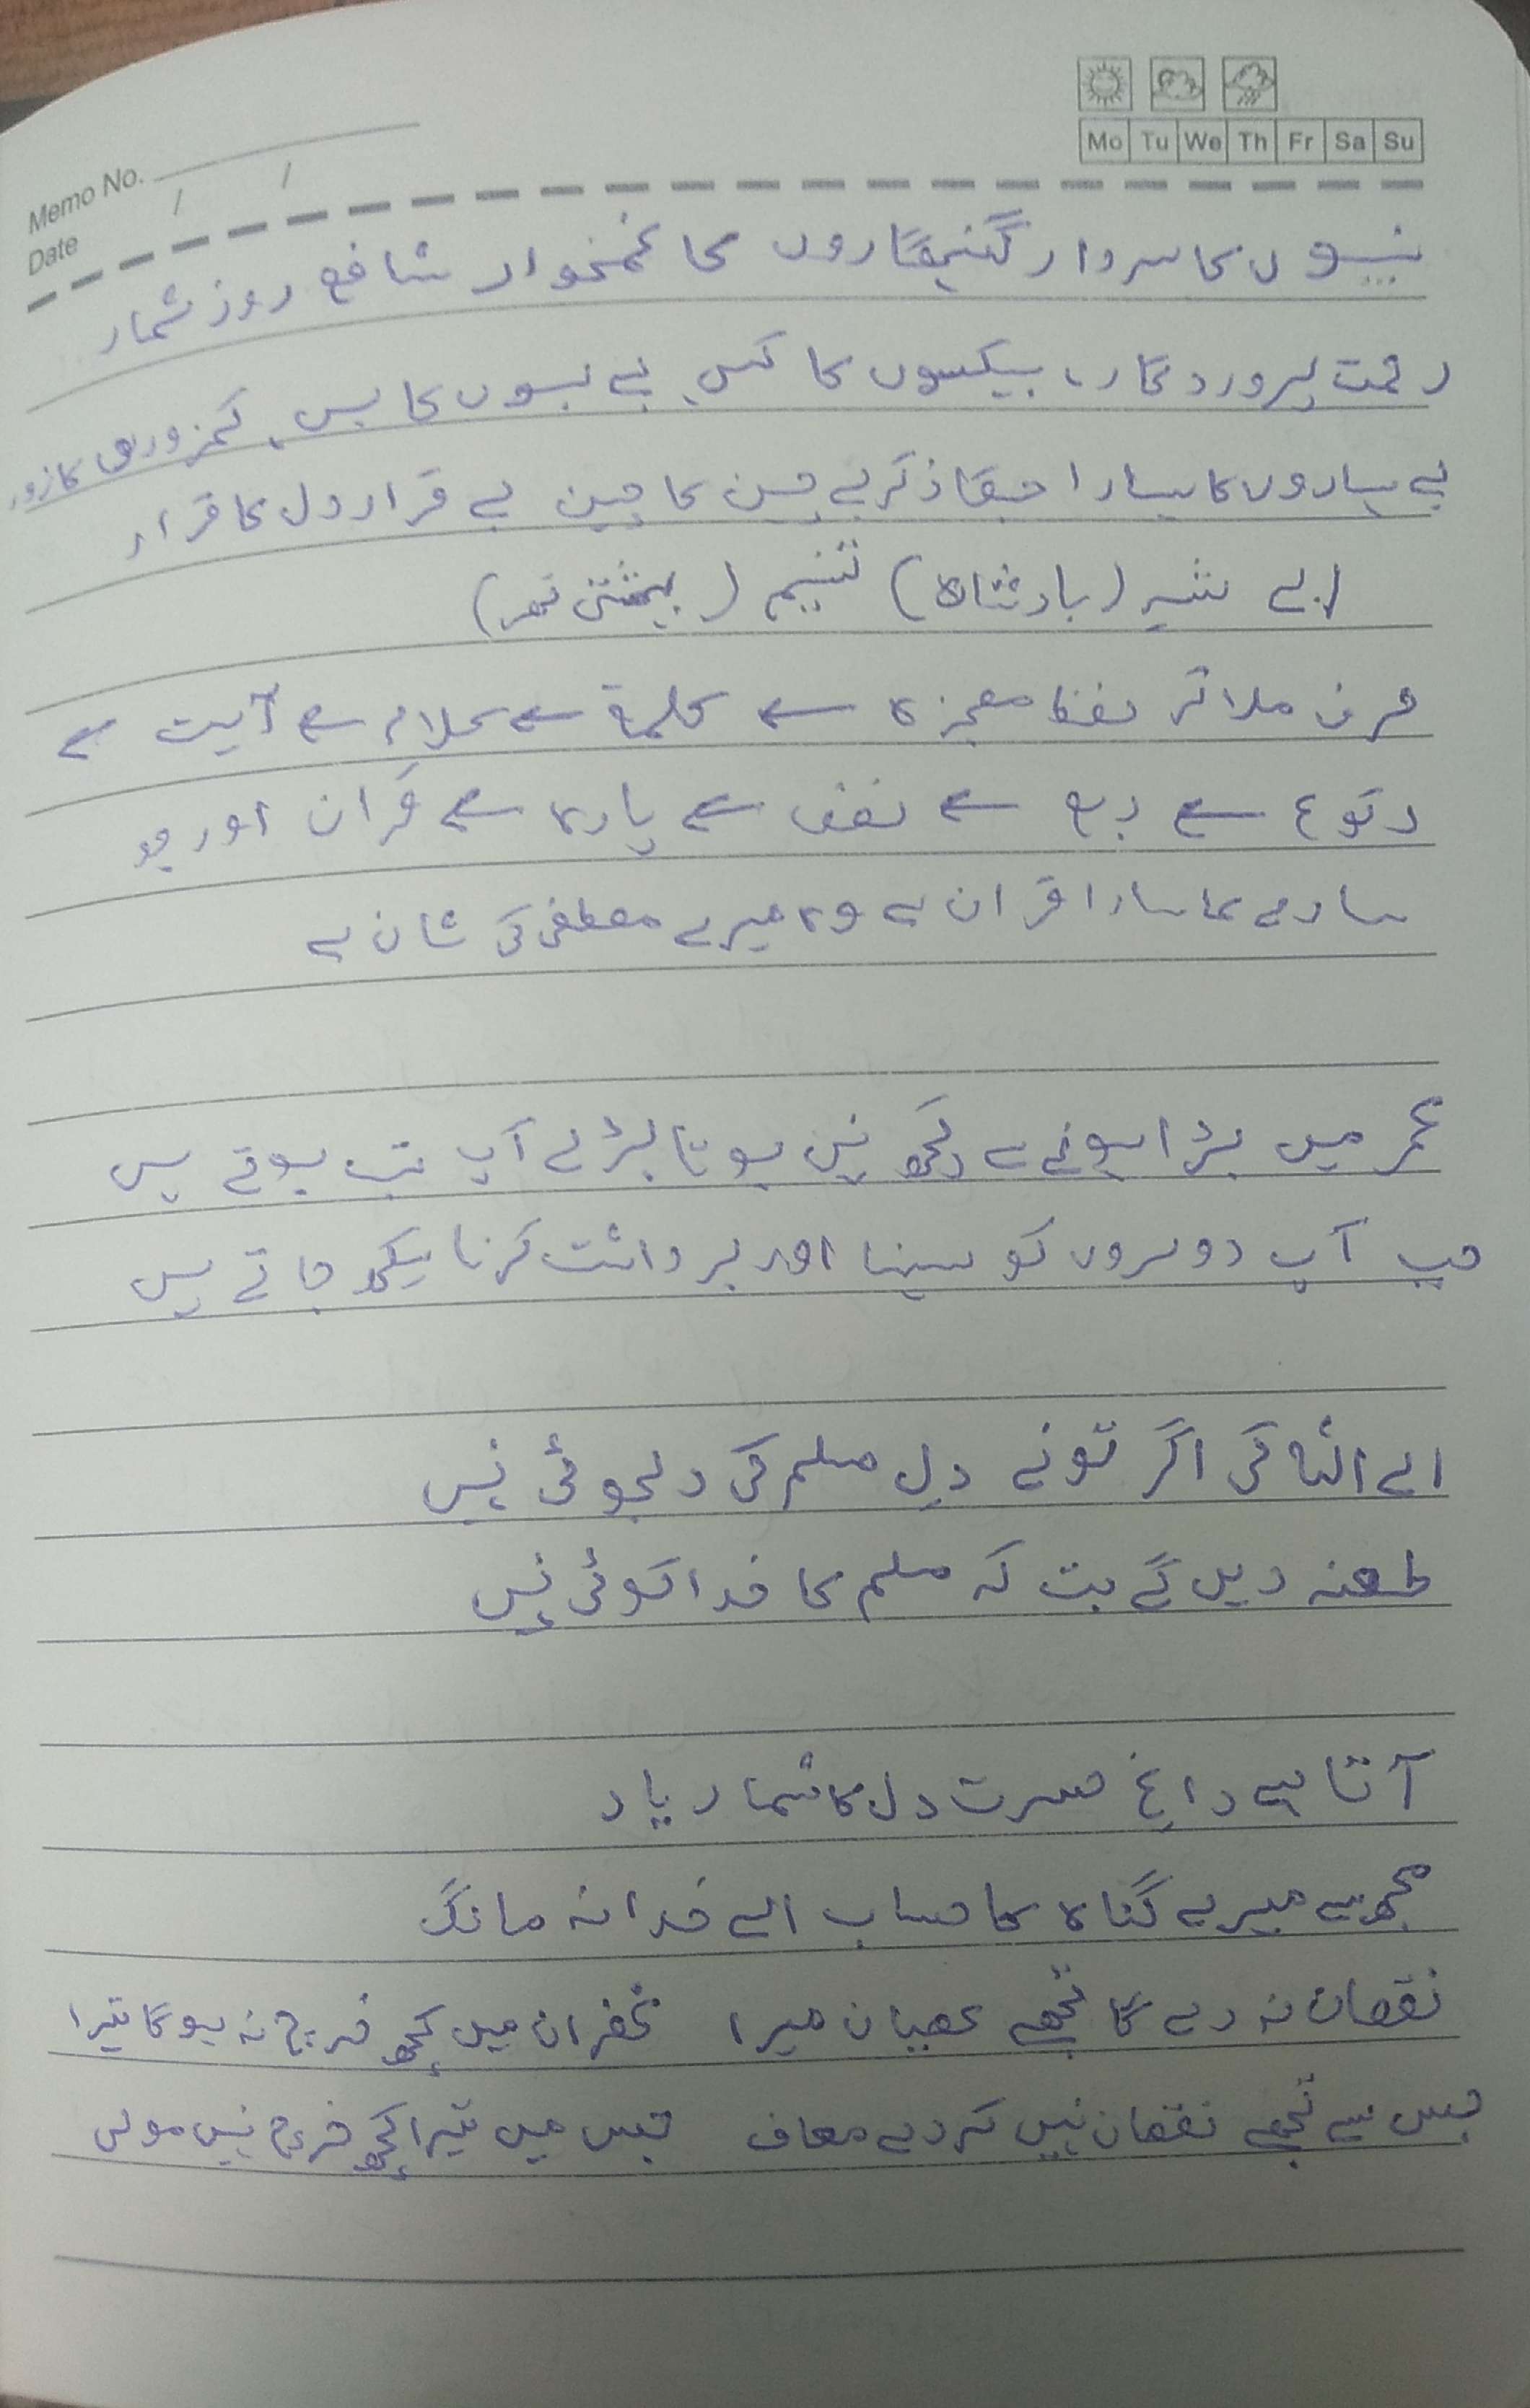 Mo Tu We Th Fr Sa Su
Memo No.
Date / /
نبیوں کا سردار گنہگاروں کا غمخوار شافع روز شمار
رحمت پروردگار، بیکسوں کا کس بے بسوں کا بس، کمزوروں کا زور
بے سہاروں کا سہارا جنکا ذکر بے چین کا چین بے قرار دل کا قرار
اے شہہ (بادشاہ) تسنیم (بہشتی نہر)
حرف ملا تو لفظ معجزہ سے کلمۃ سے کلام سے آیت سے
رکوع سے ربع سے نصف سے پارہ سے قرآن اور جو
سارے کا سارا قرآن ہے وہ میرے مصطفی کی شان ہے
عمر میں بڑا ہونے سے کچھ نہیں ہوتا بڑے آپ تب ہوتے ہیں
جب آپ دوسروں کو سہنا اور برداشت کرنا سیکھ جاتے ہیں
اے اللہ کی اگر تونے دل مسلم کی دلجوئی نہیں
طعنہ دیں گے بت کہ مسلم کا خدا کوئی نہیں
آتا ہے داغ حسرت دل کا شمار یاد
مجھ سے میرے گناہ کا حساب اے خدا نہ مانگ
نقصان نہ دے گا تجھے عصیان میرا غفران میں کچھ خرچ نہ ہوگا تیرا
جس سے تجھے نقصان نہیں کردے معاف جس میں تیرا کچھ خرچ نہیں مولی